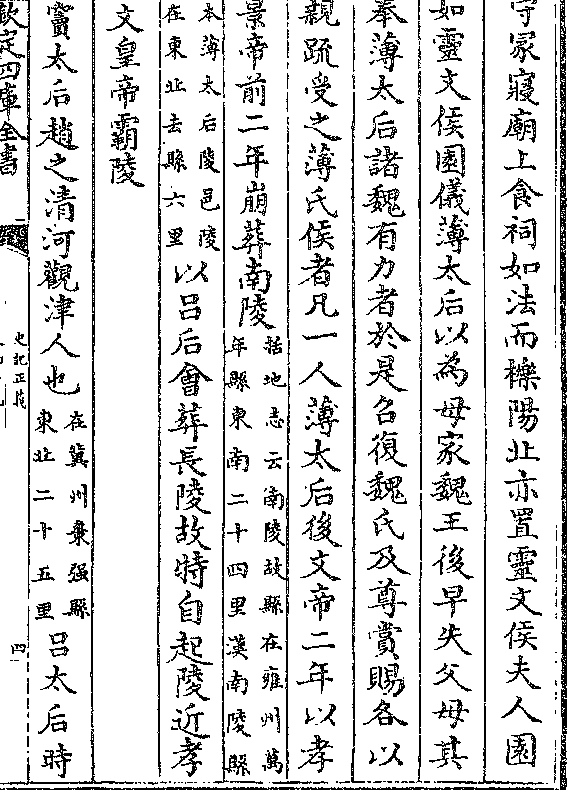 守冢寢廟上食祠如法而櫟陽北亦置靈文侯夫人園
如靈文侯園儀薄太后以為母家魏王後早失父母其
奉薄太后諸魏有力者於是召復魏氏及尊賞賜各以
親疏受之薄氏侯者凡一人薄太后後文帝二年以孝
景帝前二年崩葬南陵括地志云南陵故縣在雍州萬
年縣東南二十四里漢南陵縣
本薄太后陵邑陵
在東北去縣六里以吕后會葬長陵故特自起陵近孝
文皇帝霸陵
竇太后趙之清河觀津人也在冀州棗强縣
東北二十五里吕太后時
欽定四庫全書
史記正義
四